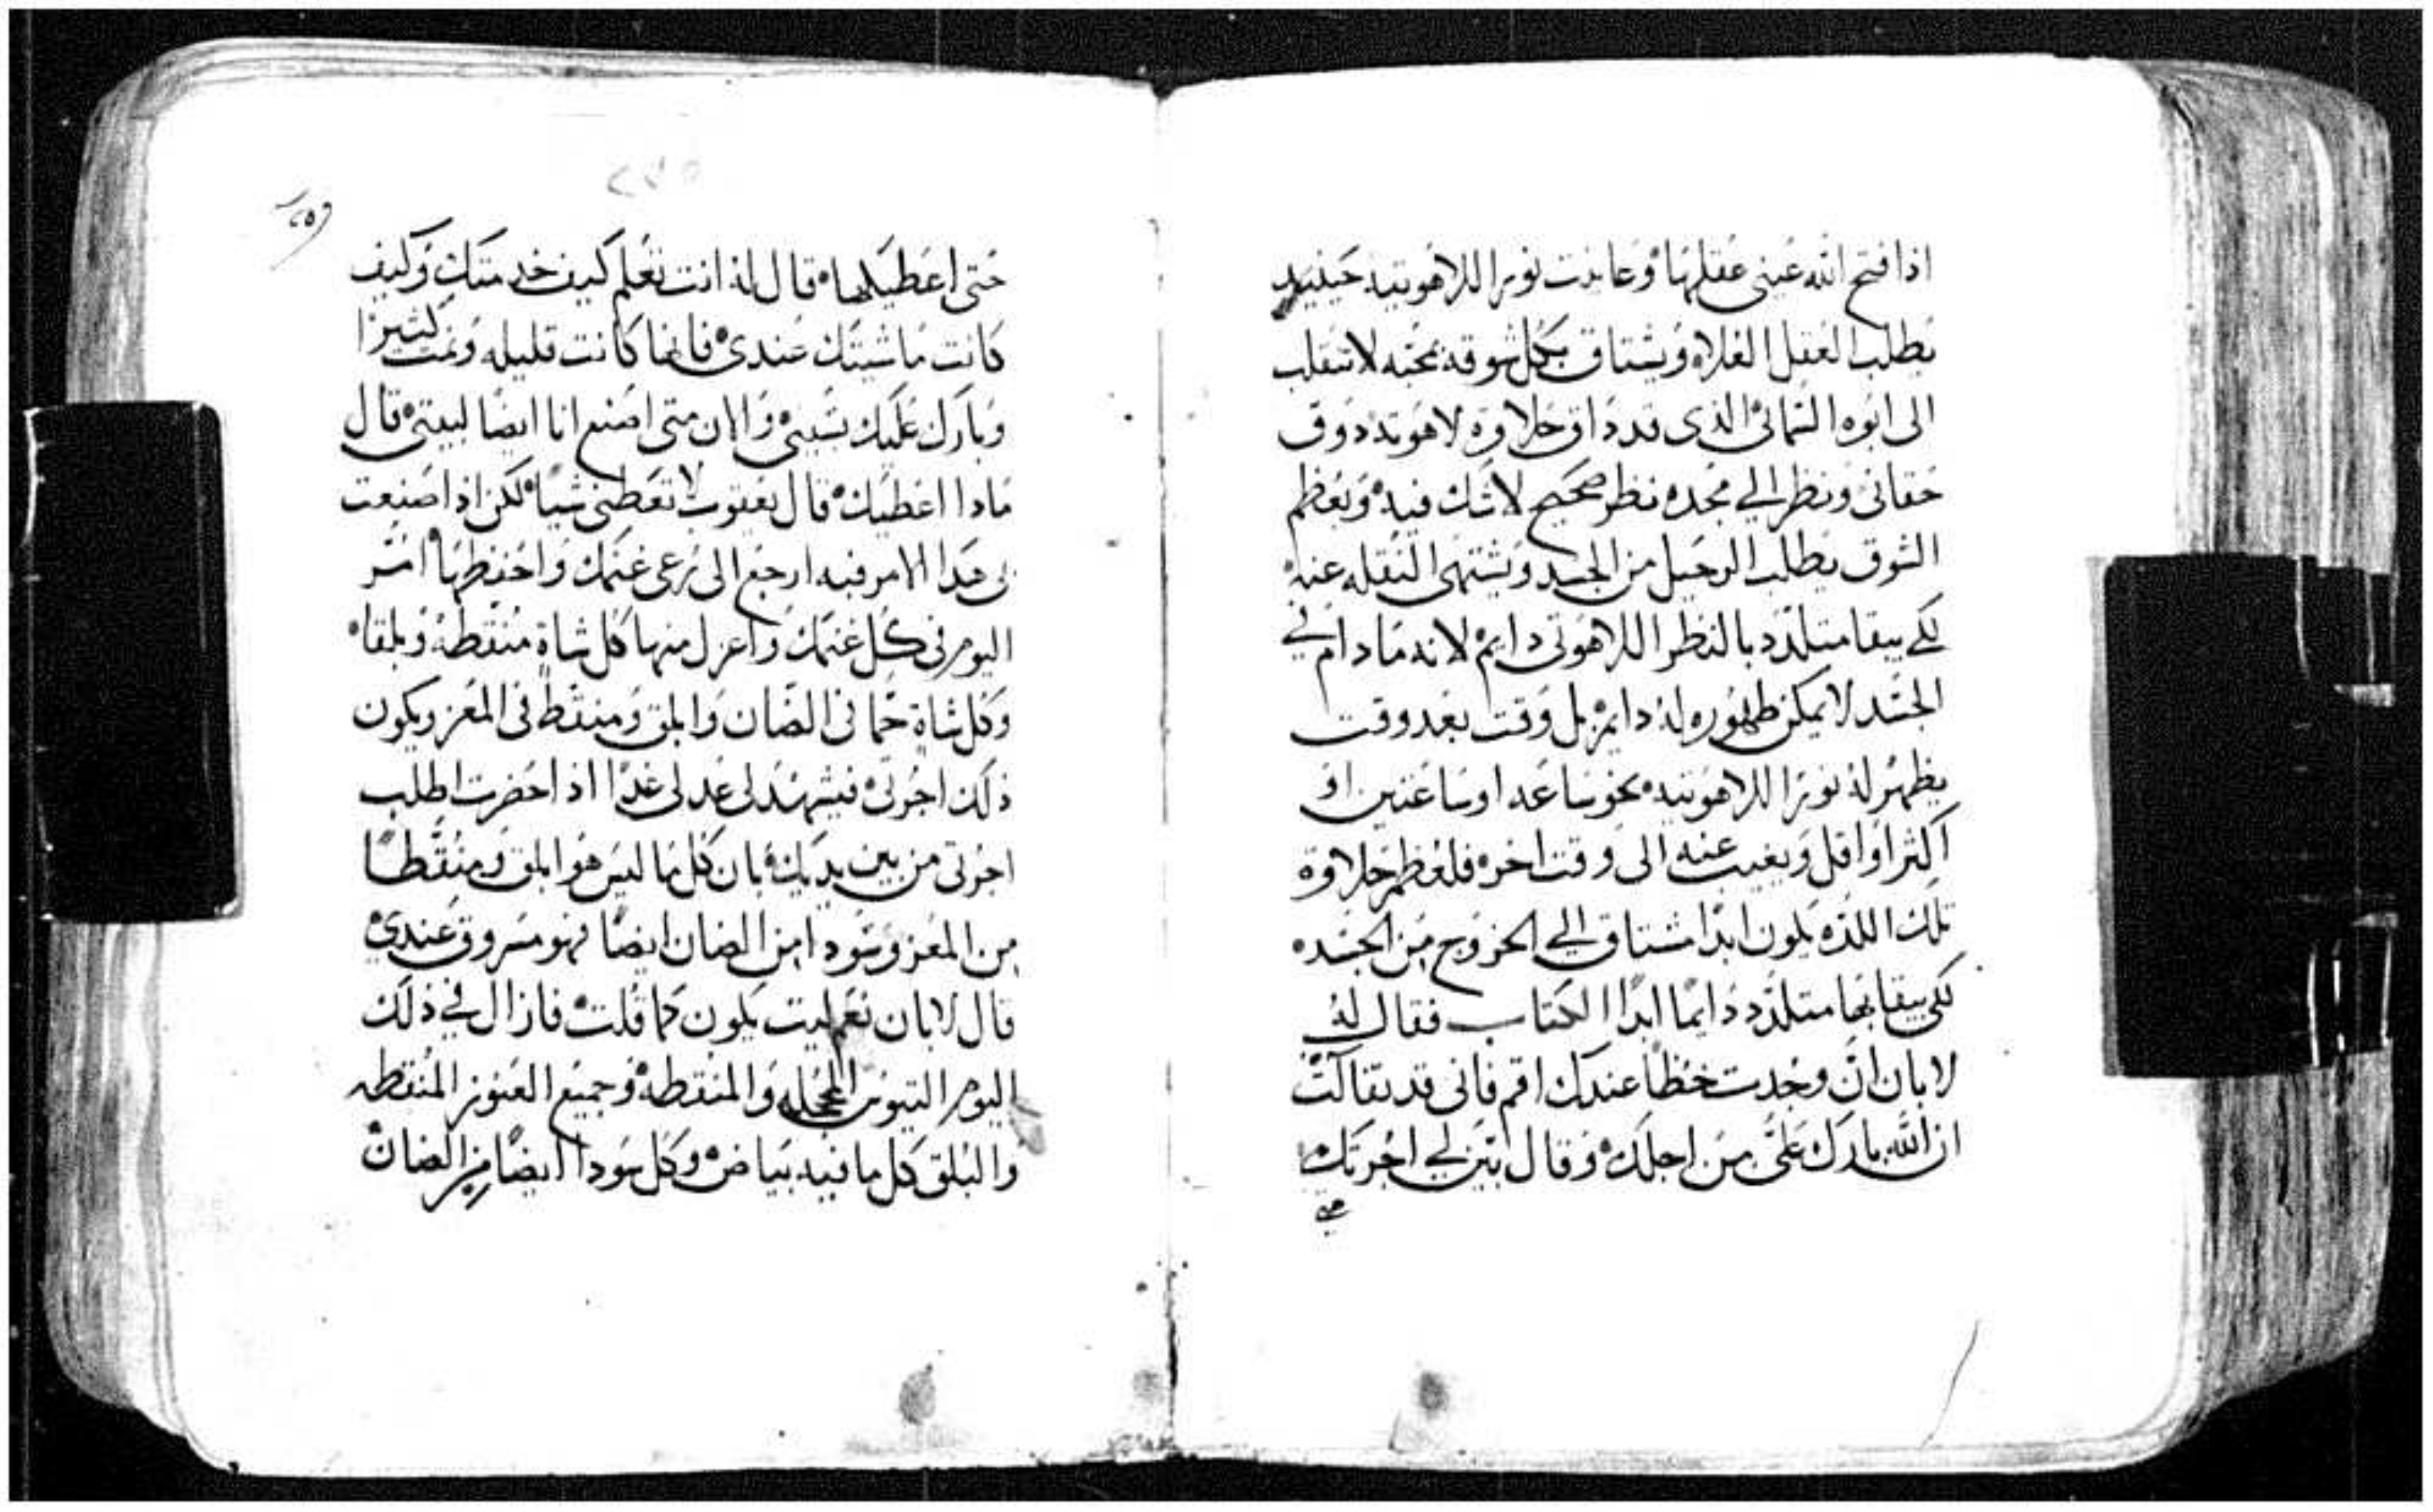 اذا فتح الله عيني عقلها وعاينت نورا للاهوتيه حينيد
يطلب العقل العلاه ويشتاق بكل شوقه بمحبه لا تنقلب
الى ابوه السمائي الذى قد داق حلاوة لاهوته دوق
حقاني ونظر الي مجده نظر صحيح لا شك فيه ويعظم
الشوق يطلب الرحيل من الجسد ويشتهى النقله عنه
لكي يبقا متلدد بالنظر اللاهوتى دايم لانه ما دام في
الجسد لا يمكن ظهوره له دايم بل وقت بعد وقت
يظهر له نورا للاهوتيه نحو ساعه او ساعتين او
اكثر او اقل ويغيب عنه الى وقت اخر فلعظم حلاوة
تلك اللذه يكون ابدا مشتاق الي الخروج من الجسد
لكي يبقا بها متلدد دايما ابدا الكتاب فقال له
لابان ان وجدت حظا عندك اقم فانى قد تفالت
ان الله بارك علىّ من اجلك وقال بين لي اجرتك
حتى
حتى اعطيكها قال له انت تعلم كيف خدمتك وكيف
كانت ماشيتك عندى فانها كانت قليله ونمت كثيرا
وبارك عليك بسببى والان متى اصنع انا ايضا لبيتى قال
مادا اعطيك قال يعقوب لا تعطني شيا لكن اذا صنعت
لى هذا الامر فيه ارجع الى نرعى غنمك واحفظها امر
اليوم في كل غنمك واعزل منها كل شاة منقطه وبلقا
وكل شاة حما في الضان وابلق ومنقط في المعز ويكون
ذلك اجرتى فيشهد لى عدلى غدا اذا حضرت اطلب
اجرتى من بين يديك بان كل ما ليس هو ابلق ومنقطا
من المعز وسودا من الضان ايضا فهو مسروق عندي
قال لابان نعم ليت يكون كما قلت فازال في ذلك
اليوم التيوس المحجله والمنقطه وجميع العنوز المنقطه
والبلق كل ما فيه بياض وكل سودا ايضا من الضان